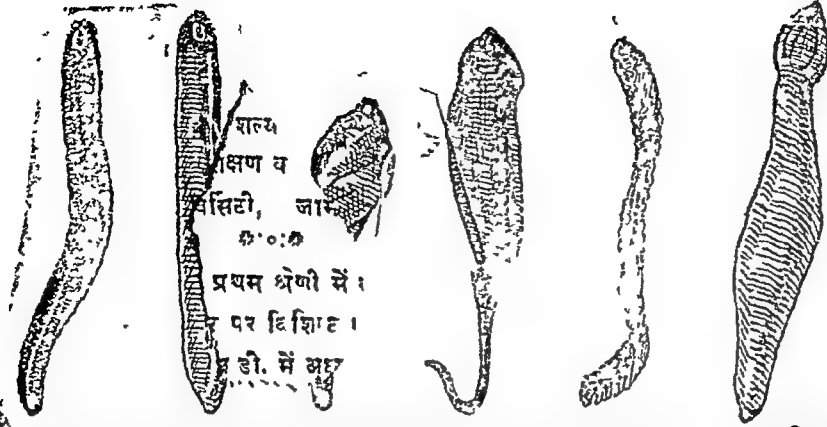 शल्य
क्षण व
र्सिटी, जाम
०:०:०
प्रथम श्रेणी में ।
र पर विशिष्ट ।
डी. में अध